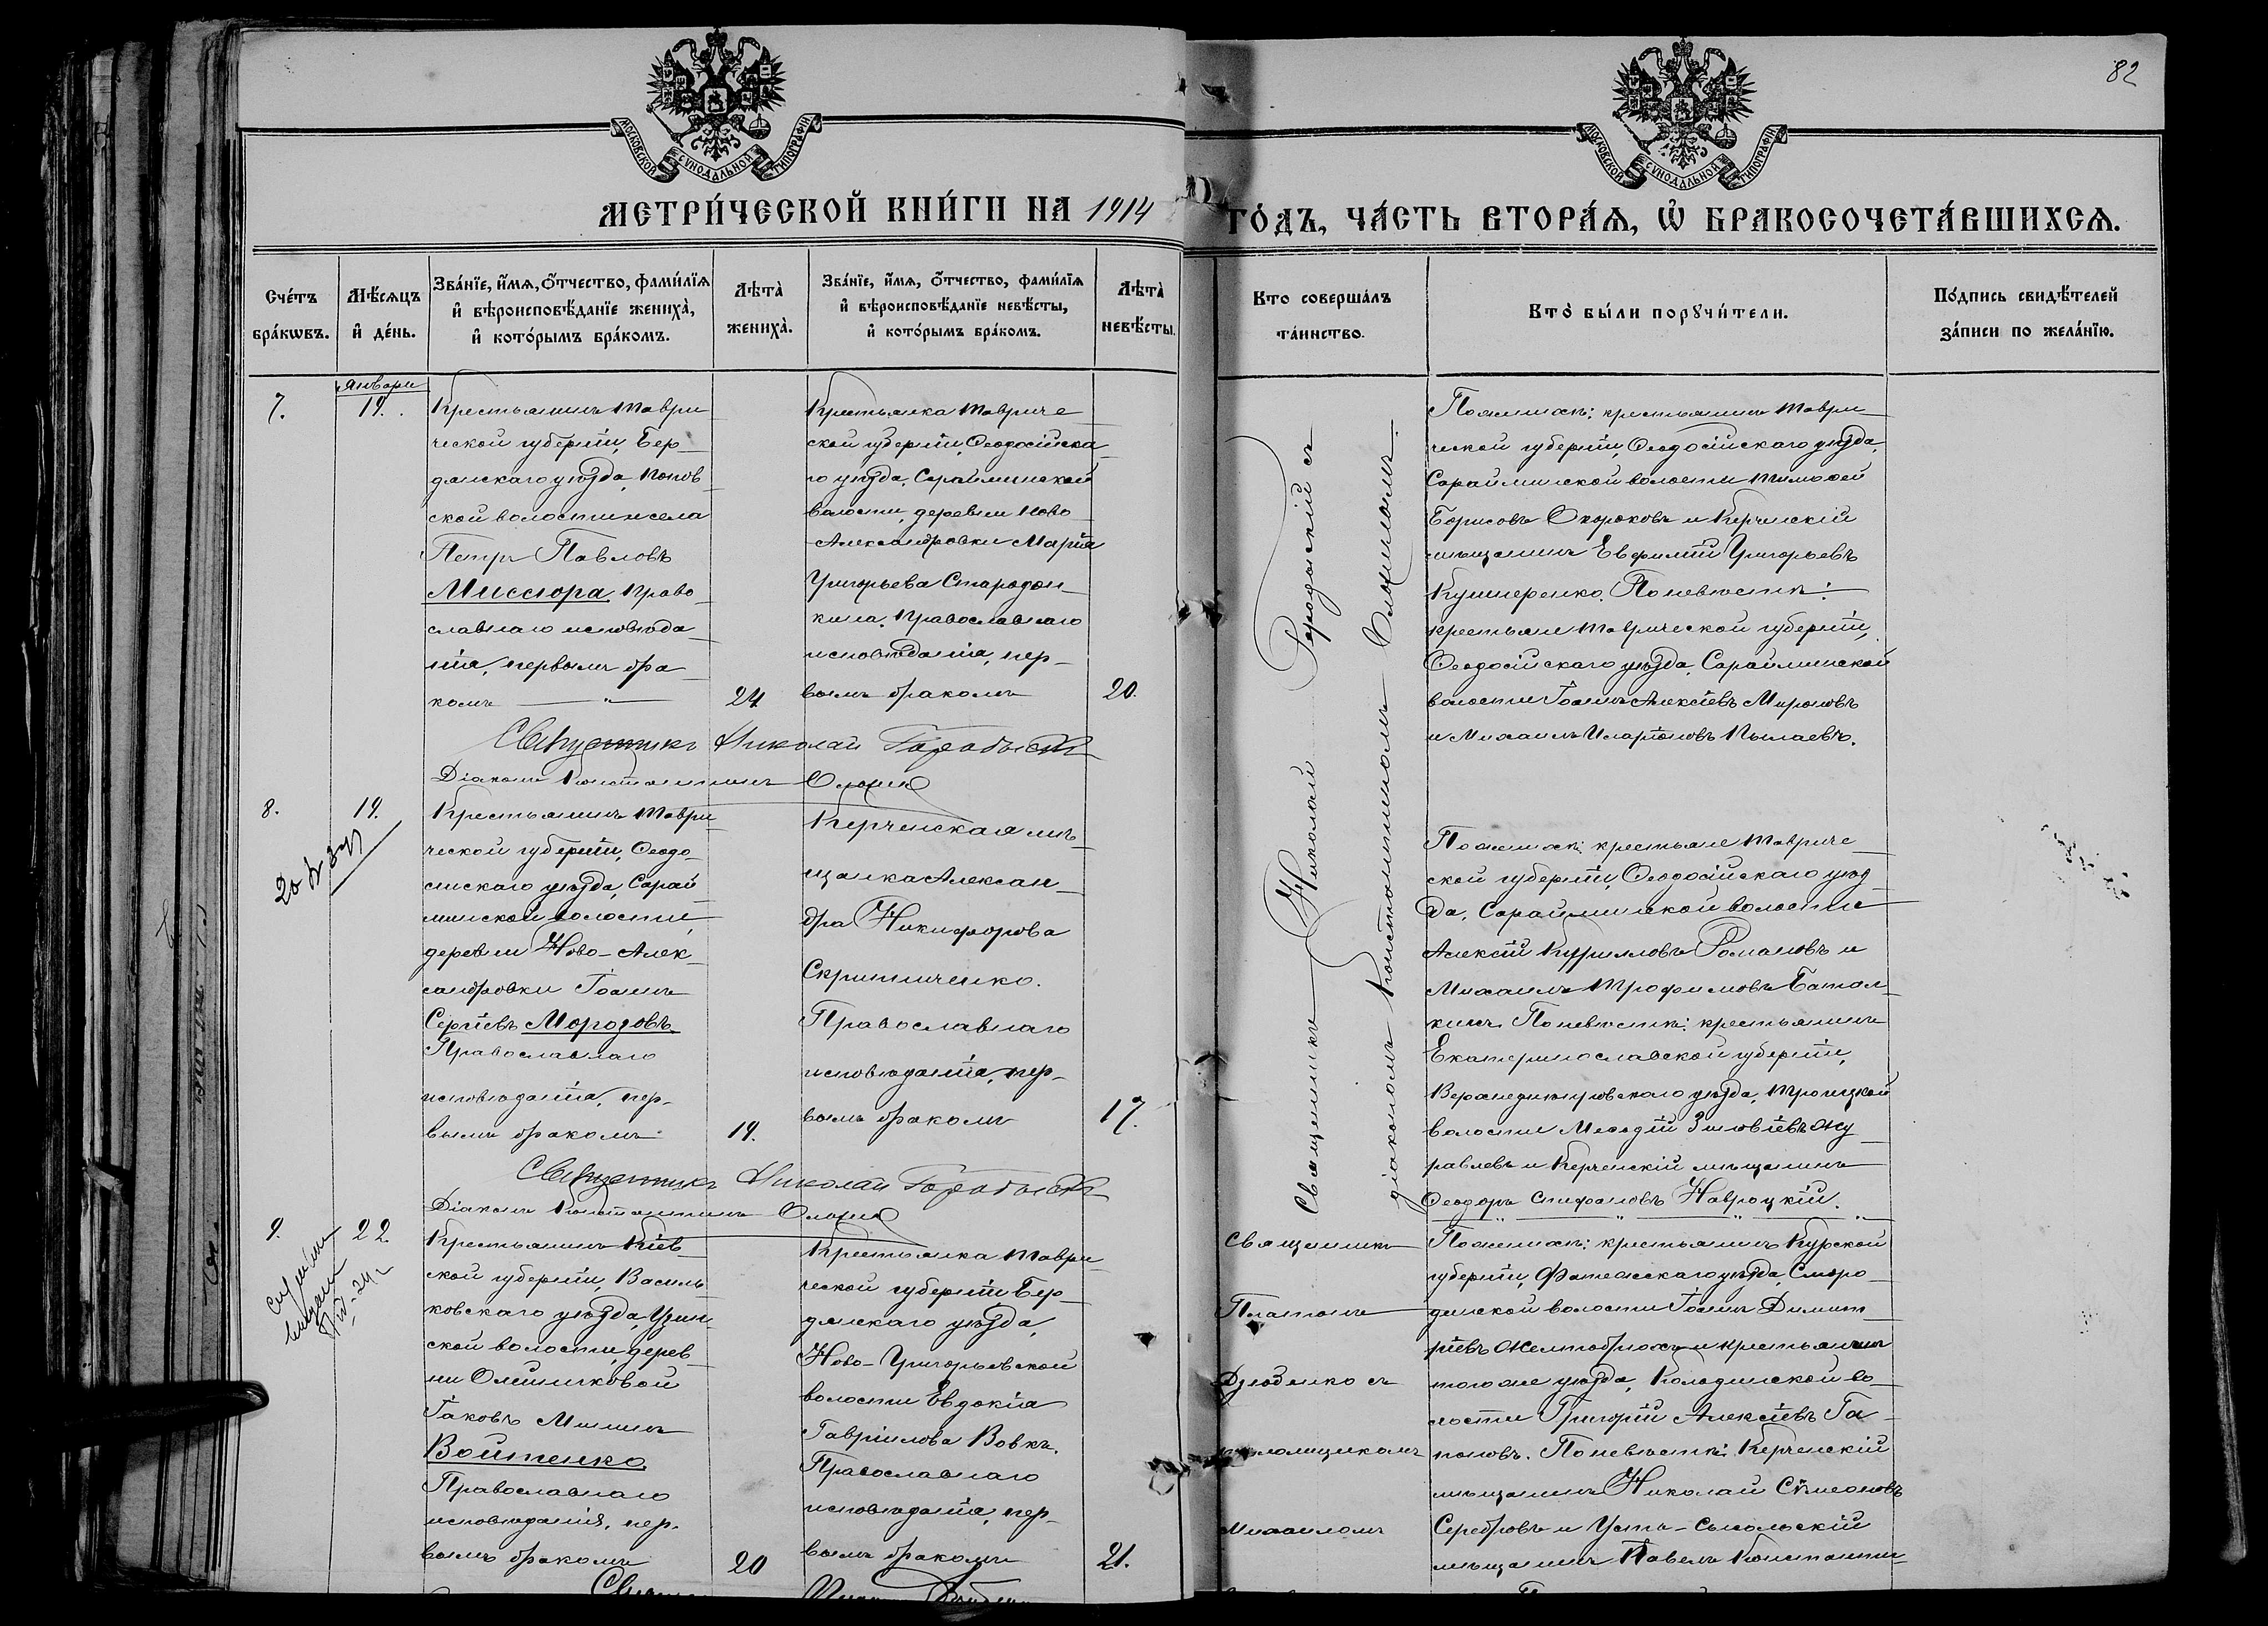 82
МОСКОВСКОЙ СУНОДАЛЬНОЙ ТИПОГРАФІИ
МОСКОВСКОЙ СУНОДАЛЬНОЙ ТИПОГРАФІИ
МЕТРИ́ЧЕСКОЙ КНИ́ГИ НА 1914
ГО́ДЪ, ЧА́СТЬ ВТОРА́Я, Ѡ҆ БРАКОСОЧЕТА́ВШИХСЯ.
Сче́тъ
бра́кѡвъ.
Мѣ́сяцъ
и҆ де́нь.
Зва́нїе, и҆́мя, о҆́тчество, фами́лїя
и҆ вѣроисповѣ́данїе жениха̀,
и҆ кото́рымъ бра́комъ.
Лѣта̀
жениха̀.
Зва́нїе, и҆́мя, о҆́тчество, фами́лїя
и҆ вѣроисповѣ́данїе невѣ́сты,
и҆ кото́рымъ бра́комъ.
Лѣта̀
невѣ́сты.
Кто соверша́лъ
та́инство.
Кто̀ бы́ли порꙋчи́тели.
По́дпись свидѣ́телей
за́писи по жела́нїю.
Января
7.
19.
Крестьянинъ Таври
ческой губерніи, Бер-
дянскаго уѣзда, Попов-
ской волости и села
Петръ Павловъ
Миссюра, право-
славнаго исповѣда-
нія, первымъ бра-
комъ
24
Крестьянка Тавриче
ской губерніи, Ѳеодосійска-
го уѣзда, Сарайминской
волости, деревни Ново-
Александровки Марія
Григорьева Стародон-
кина, православнаго
исповѣданія, пер-
вымъ бракомъ
20.
Священникъ Николай
Діаконъ Константинъ
Священникъ Николай
діакономъ Константиномъ
По женихѣ: крестьянинъ Таври-
ческой губерніи, Ѳеодосійскаго уѣзда,
Сарайминской волости Тимофей
Борисовъ Скороковъ и Керченскій
мѣщанинъ Евфимій Григорьевъ
Кушнеренко. По невѣстѣ:
крестьяне Таврической губерніи,
Ѳеодосійскаго уѣзда, Сарайминской
волости Іоаннъ Алексіевъ Мироновъ
и Михаилъ Иларіоновъ Пылаевъ.
8.
19.
Крестьянинъ Таври-
ческой губерніи, Ѳеодо-
сійскаго уѣзда, Сарай-
минской волости,
деревни Ново-Алек-
сандровки Іоаннъ
Сергіевъ Морозовъ
Православнаго
исповѣданія, пер-
вымъ бракомъ
19.
Керченская мѣ-
щанка Алексан-
дра Никифорова
Скрипниченко.
Православнаго
исповѣданія, пер-
вымъ бракомъ
17.
Священникъ Николай
Діаконъ Константинъ
По женихѣ: крестьяне Тавриче-
ской губерніи, Ѳеодосійскаго уѣз-
да, Сарайминской волости
Алексій Кирилловъ Романовъ и
Михаилъ Трофимовъ Батал-
кинъ. По невѣстѣ: крестьянинъ
Екатеринославской губерніи,
Верхнеднѣпровскаго уѣзда, Троицкой
волости Меѳодій Зиновіевъ Жу-
равлевъ и Керченскій мѣщанинъ
Ѳеодоръ Стефановъ Навроцкій.
9.
22.
Крестьянинъ Кіев-
ской губерніи, Василь-
ковскаго уѣзда, Узин-
ской волости, дерев-
ни Олейниковой
Іаковъ Мининъ
Войтенко
Православнаго
исповѣданія, пер-
вымъ бракомъ
20
Крестьянка Таври-
ческой губерніи Бер-
дянскаго уѣзда,
Ново-Григорьевской
волости Евдокія
Гавріилова Вовкъ.
Православнаго
исповѣданія, пер-
вымъ бракомъ
21.
Священникъ
Платонъ
Дзюбенко съ
псаломщикомъ
Михаиломъ
По женихѣ: крестьянинъ Курской
губерніи, Фатежскаго уѣзда, Сморо-
динской волости Іоаннъ Димит-
ріевъ Желтобрюхъ и крестьянинъ
того же уѣзда, Колодинской во-
лости Григорій Алексіевъ Га-
поновъ. По невѣстѣ: Керченскій
мѣщанинъ Николай Сѵмеоновъ
Серебровъ и Усть-Сысольскій
мѣщанинъ Павелъ Константи-